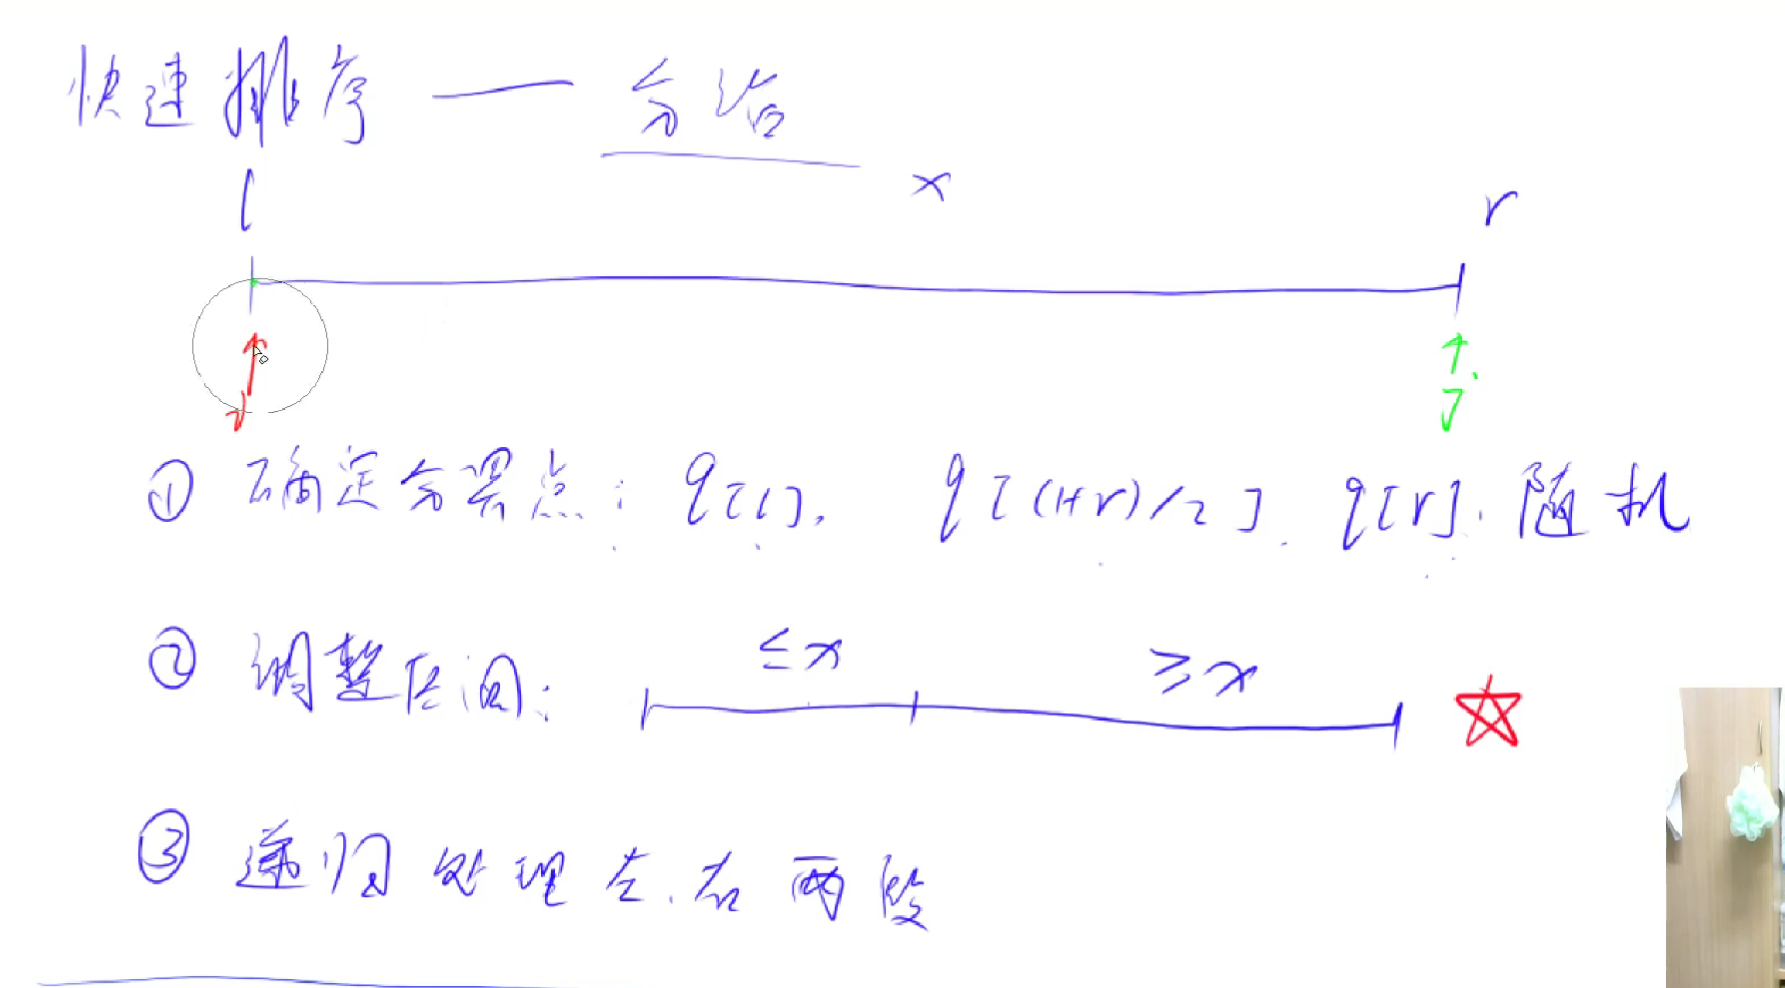 快速排序 — 分治
l x r
i j
① 确定分界点: q[l], q[(l+r)/2], q[r], 随机
② 调整区间: ≤x ≥x
③ 递归处理左、右两段